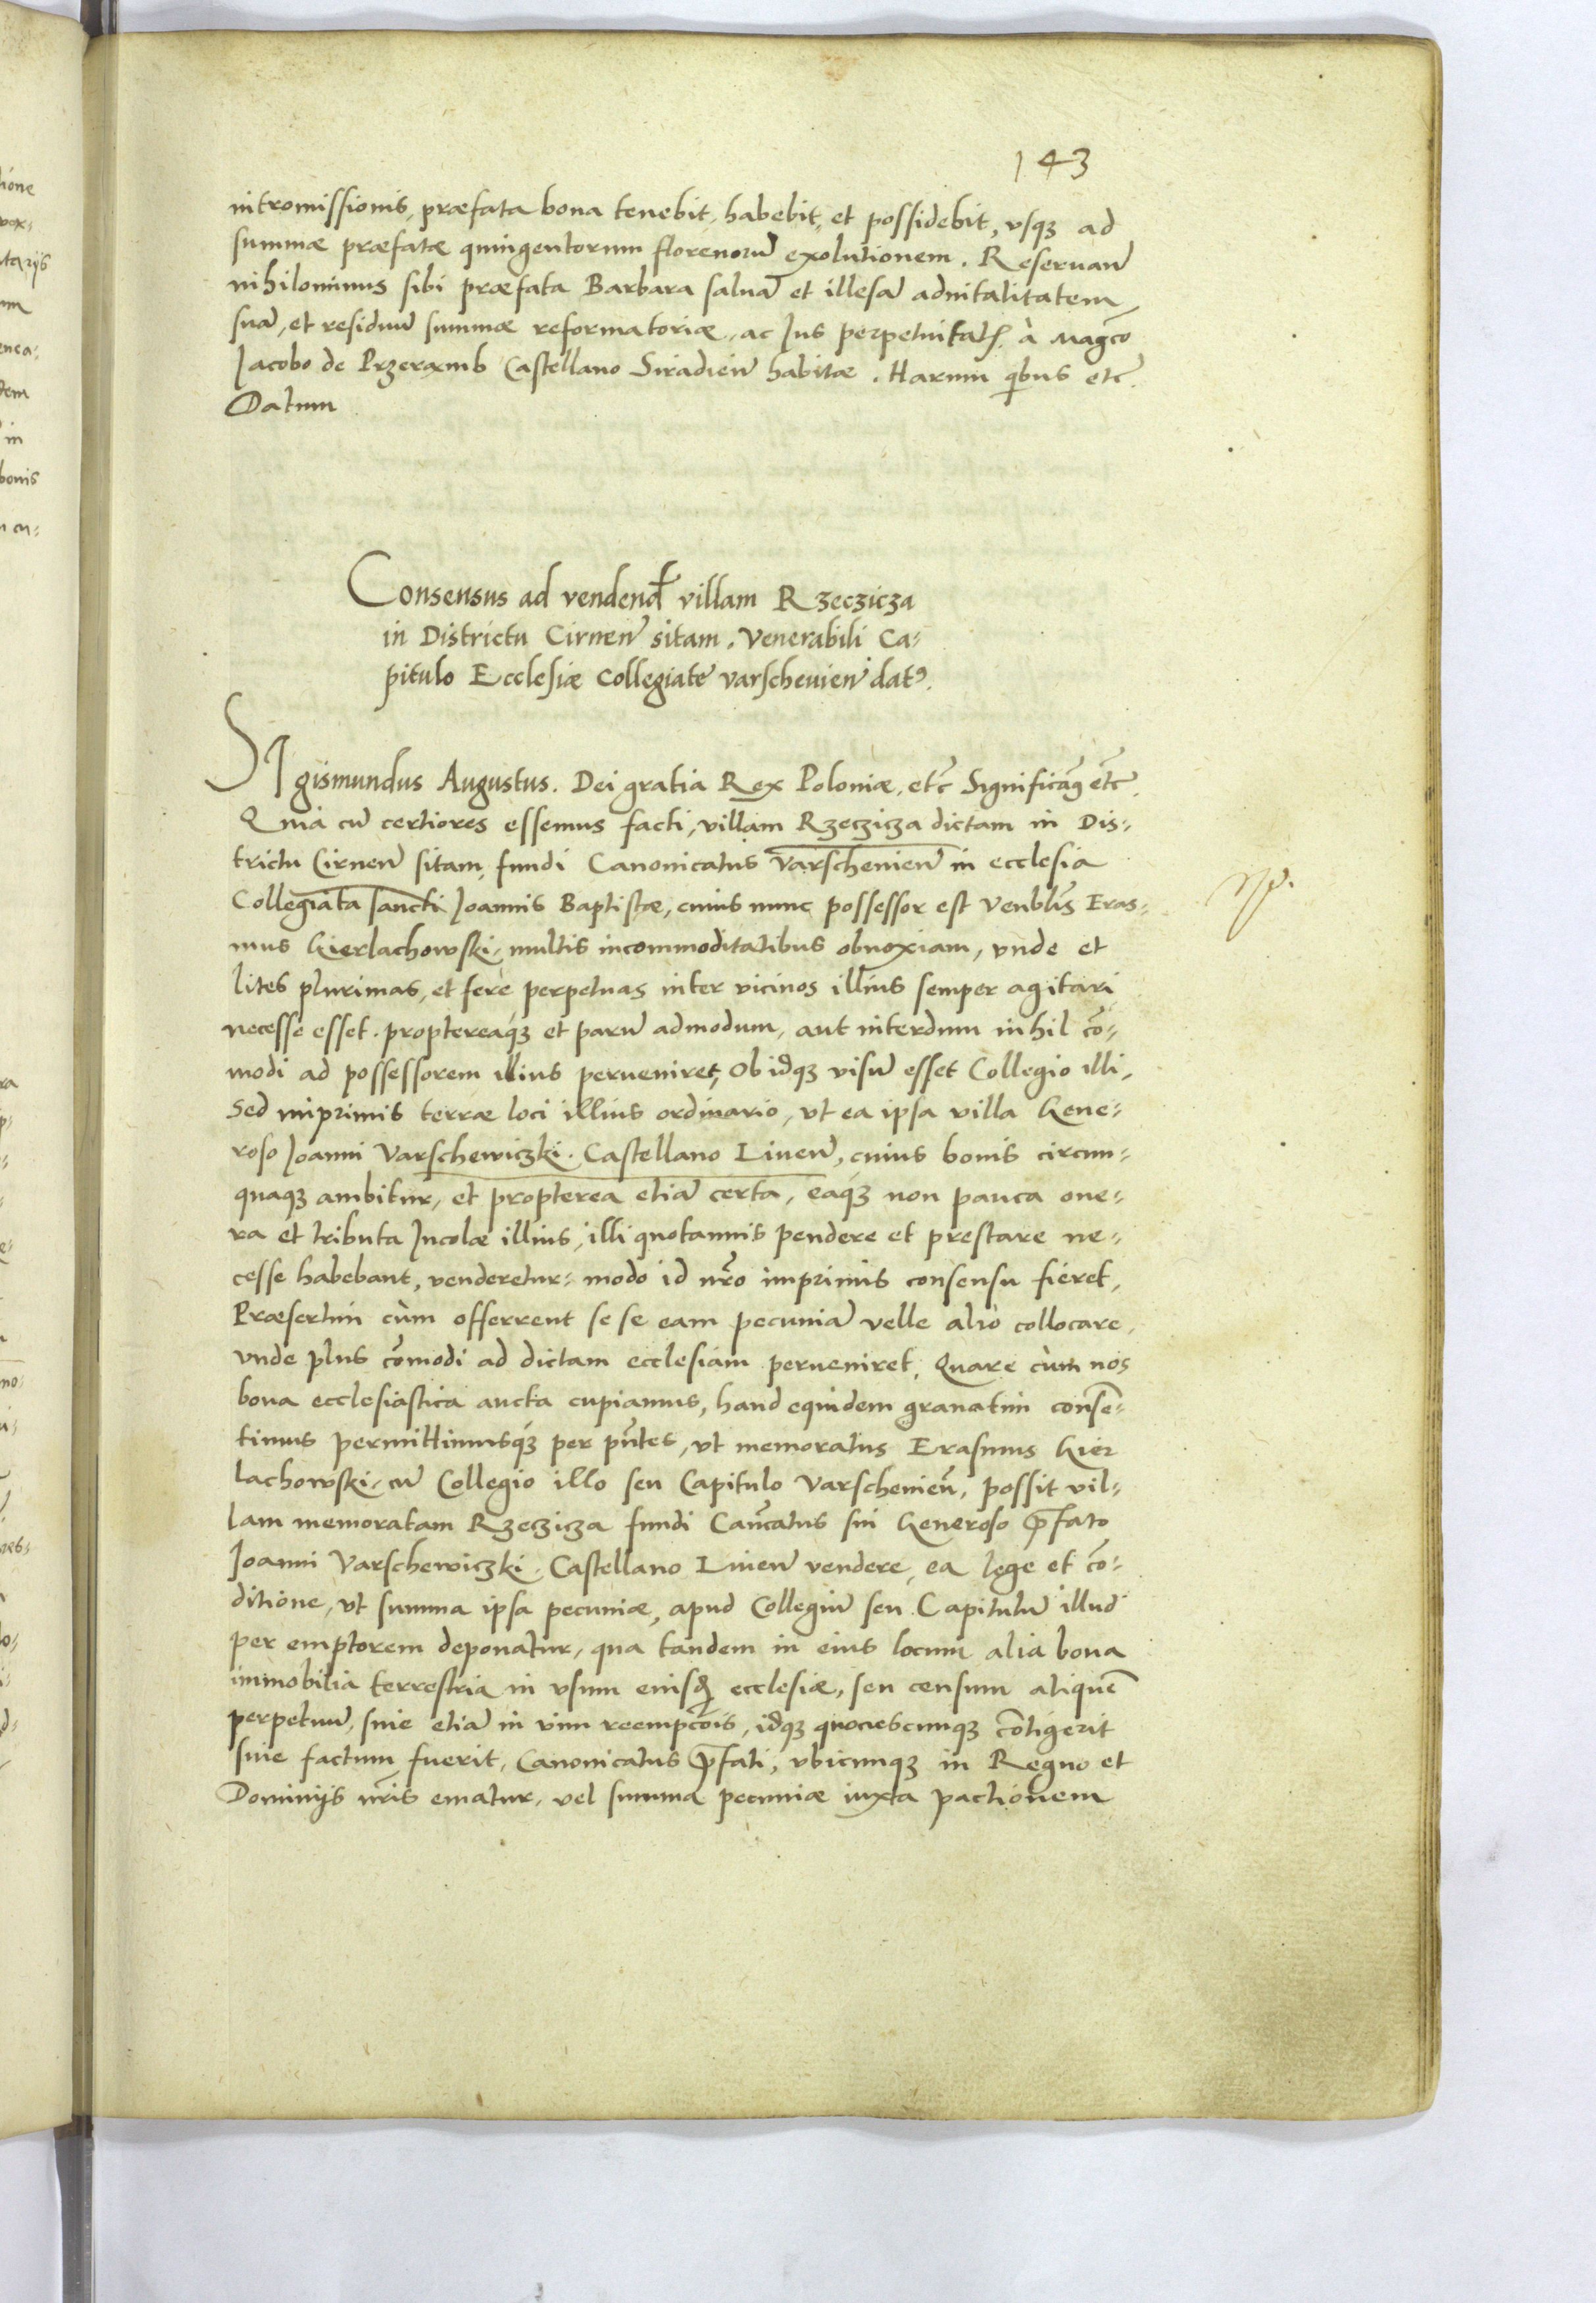 143
intromissionis, præfata bona tenebit, habebit, et possidebit, vsqȝ ad
summæ præfatæ quingentorum florenorū exolutionem. Reseruan̄
nihilominus sibi præfata Barbara saluā et illesā aduitalitatem
suā, et residuū summæ reformatoriæ, ac Ius perpetuitatꝭ à Magc̄o
Jacobo de Przeramb Castellano Siradien̄ habitæ. Harum qibus etc̄.
Datum
Consensus ad vendend̄ villam Rzeczicza
in Districtu Cirnen̄ sitam. Venerabili Ca-
pitulo Ecclesiæ Collegiatæ varscheuien̄ datꝰ.
SIgismundus Augustus. Dei gratia Rex Poloniæ, etc̄ Significam̄ꝰ etc̄.
Quia cū certiores essemus facti, villam Rzeczicza dictam in Dis-
trictu Cirnen̄ sitam, fundi Canonicatus Varscheuien̄ in ecclesia
Collegiata sancti Joannis Baptistæ, cuius nunc possessor est Venblīs Eras-
mus Gierlachowski, multis incommoditatibus obnoxiam, vnde et
lites plurimas, et fere perpetuas inter vicinos illius semper agitari
necesse esset. proptereaqȝ et parū admodum, aut interdum nihil cō-
modi ad possessorem illius perueniret, Ob idqȝ visū esset Collegio illi,
Sed inprimis terræ loci illius ordinario, vt ea ipsa villa Gene-
roso Joanni Varschewiczki. Castellano Liuen̄, cuius bonis circum-
quaqȝ ambitur, et propterea etiā certa, eaqȝ non pauca one-
ra et tributa Incolæ illius, illi quotannis pendere et prestare ne-
cesse habebant, venderetur- modo id nr̄o imprimis consensu fieret,
Præsertim cùm offerrent se se eam pecuniā velle alio collocare,
vnde plus cōmodi ad dictam ecclesiam perueniret, Quare cùm nos
bona ecclesiastica aucta cupiamus, haud equidem grauatim consē-
timus permittimusqȝ per pn̄tes, vt memoratus Erasmus Gier
lachowski, cū Collegio illo seu Capitulo Varscheuien̄, possit vil-
lam memoratam Rzeczicza fundi Can̄catus sui Generoso p̄fato
Joanni Varschewiczki. Castellano Liuen̄ vendere, ea lege et cō-
ditione, vt summa ipsa pecuniæ, apud Collegiū seu Capitulū illud
per emptorem deponatur, qua tandem in eius locum alia bona
immobilia terrestria in vsum eiusdꝫ ecclesiæ, seu censum aliquē
perpetuū, siue etiā in vim reempc̄ois, idqȝ quociescunqȝ cōtigerit
siue factum fuerit, Canonicatus p̄fati, vbicunqȝ in Regno et
Dominijs nr̄is ematur, vel summa pecuniæ iuxta pactionem